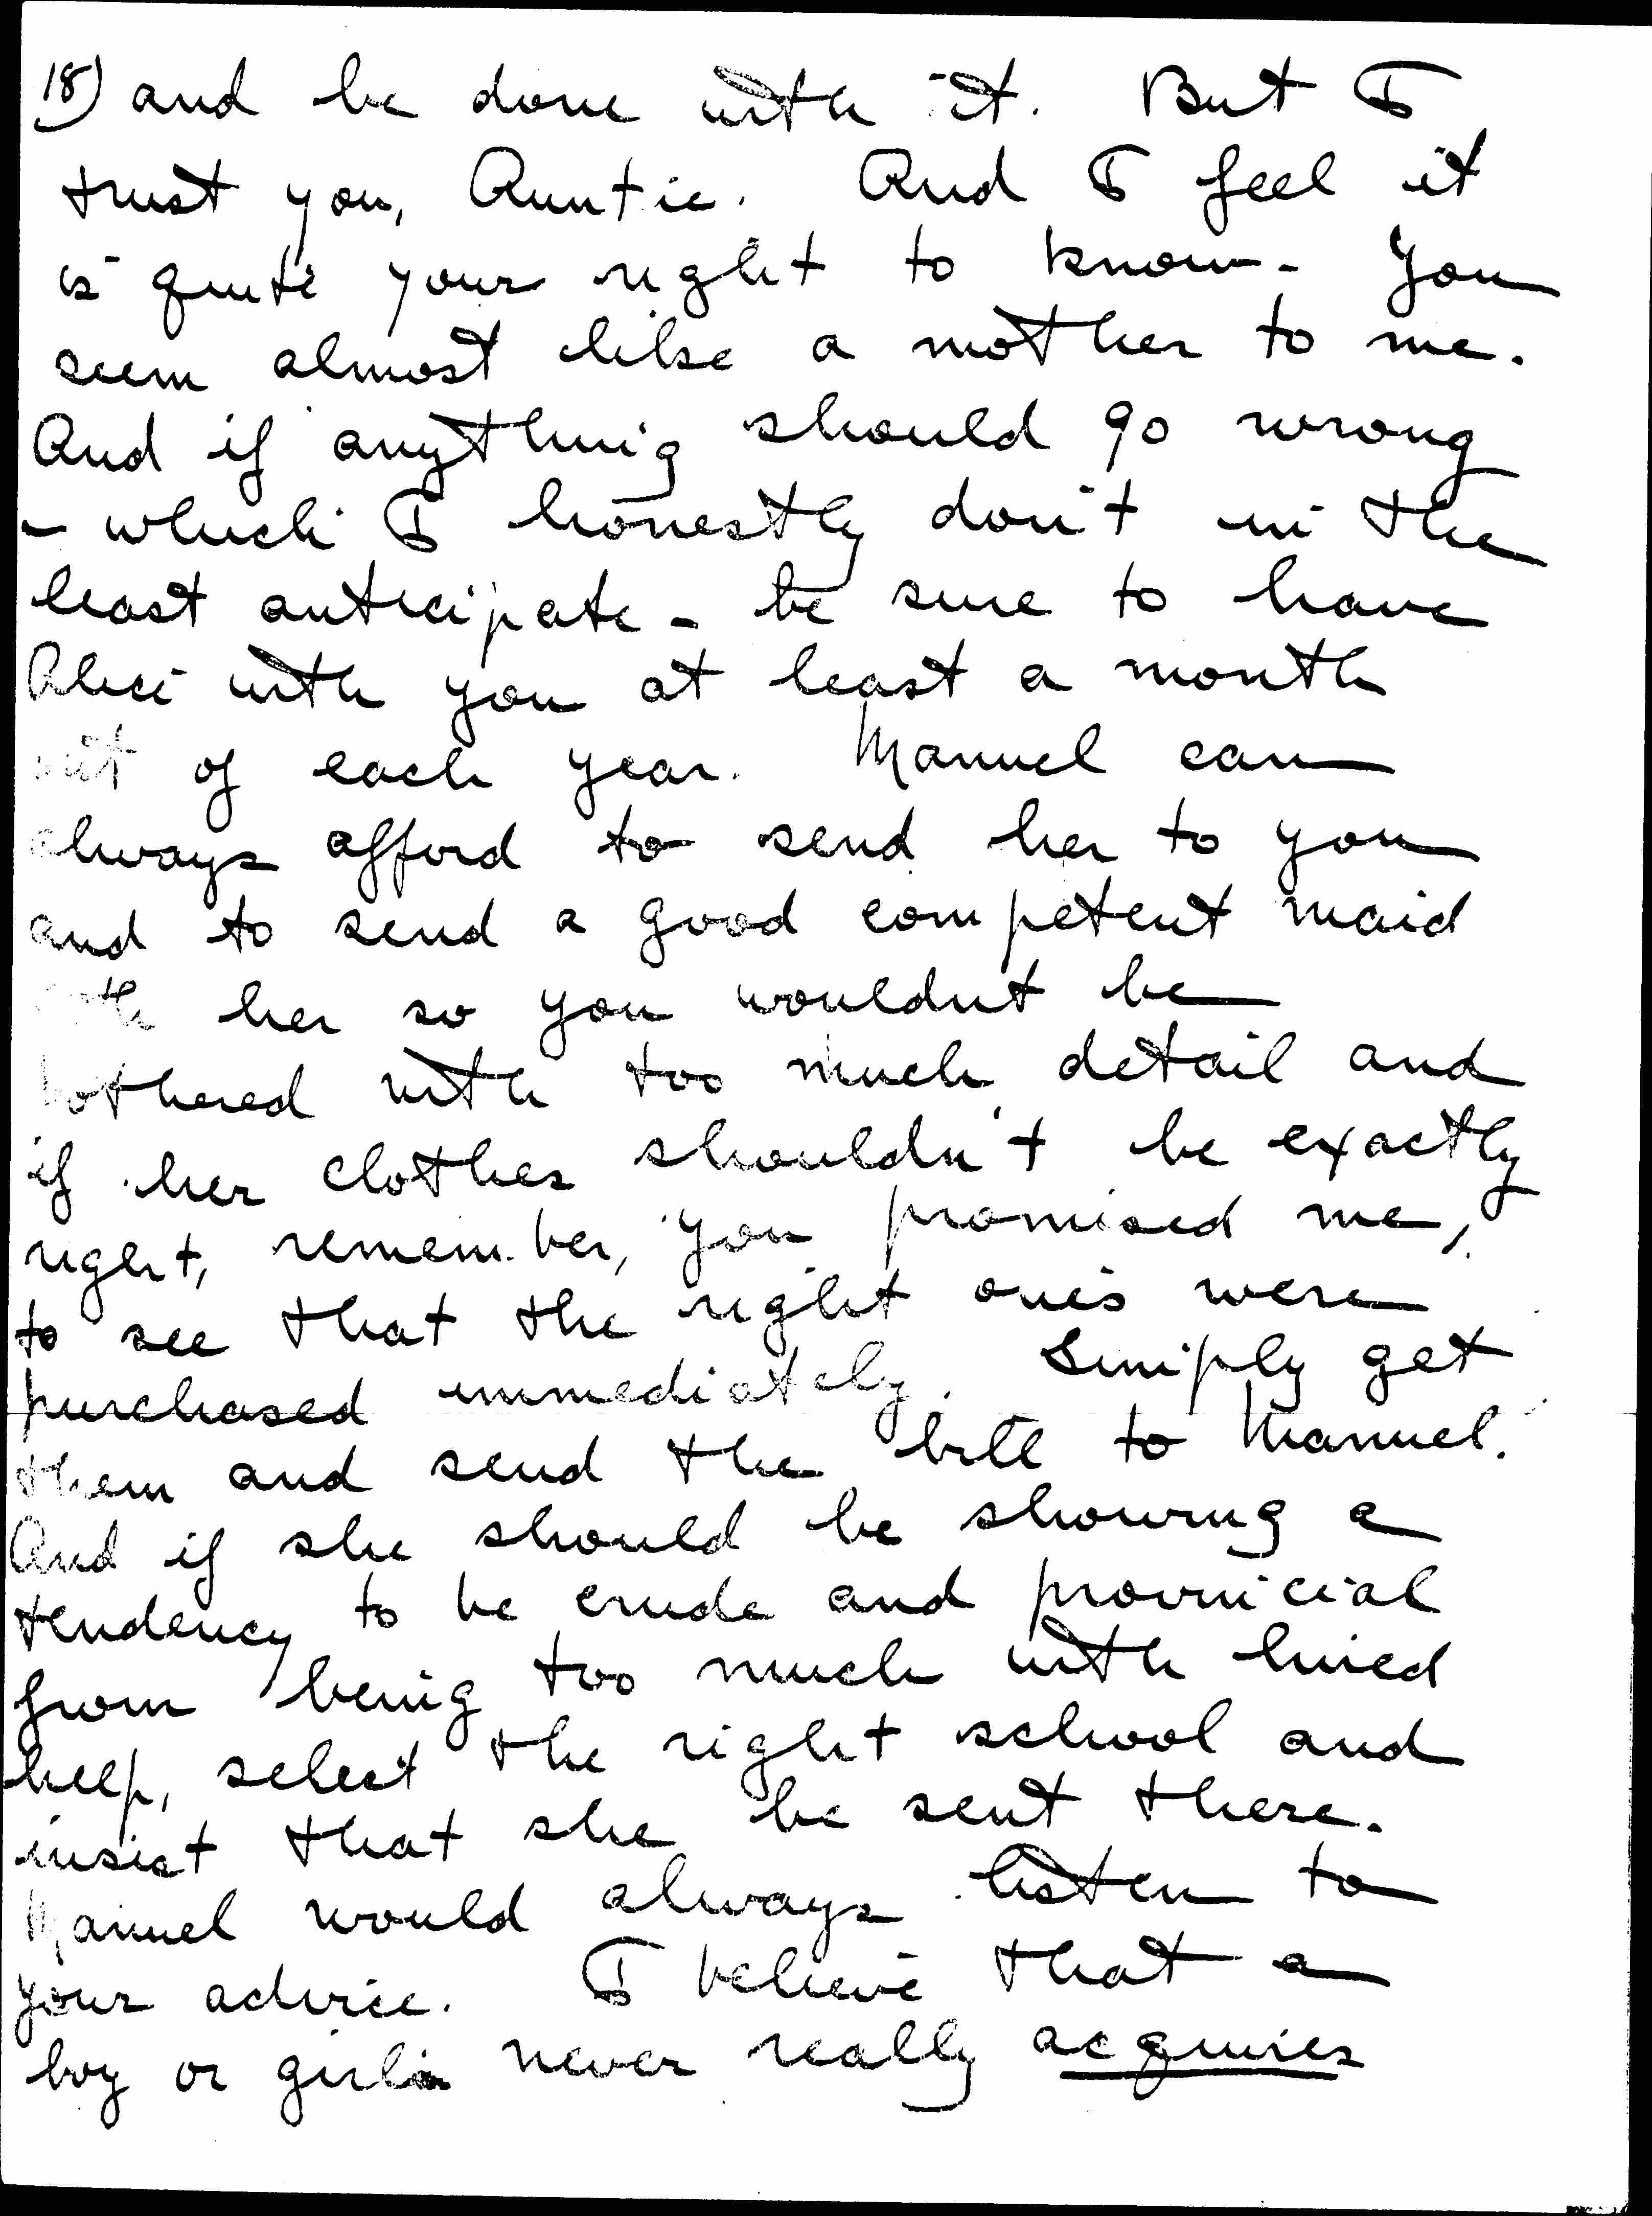 18) and be done with it. But I
trust you, Auntie. And I feel it
is quite your right to know - you
seem almost like a mother to me.
And if anything should go wrong
- which I honestly don't in the
least anticipate - be sure to have
Alice with you at least a month
out of each year. Manuel can
always afford to send her to you
and to send a good competent maid
with her so you wouldn't be
bothered with too much detail and
if her clothes shouldn't be exactly
right, remember, you promised me,
to see that the right ones were
purchased immediately. Simply get
them and send the bill to Manuel.
And if she should be showing a
tendency to be crude and provincial
from being too much with hired
help, select the right school and
insist that she be sent there.
Manuel would always listen to
your advice. I believe that a
boy or girl never really acquires